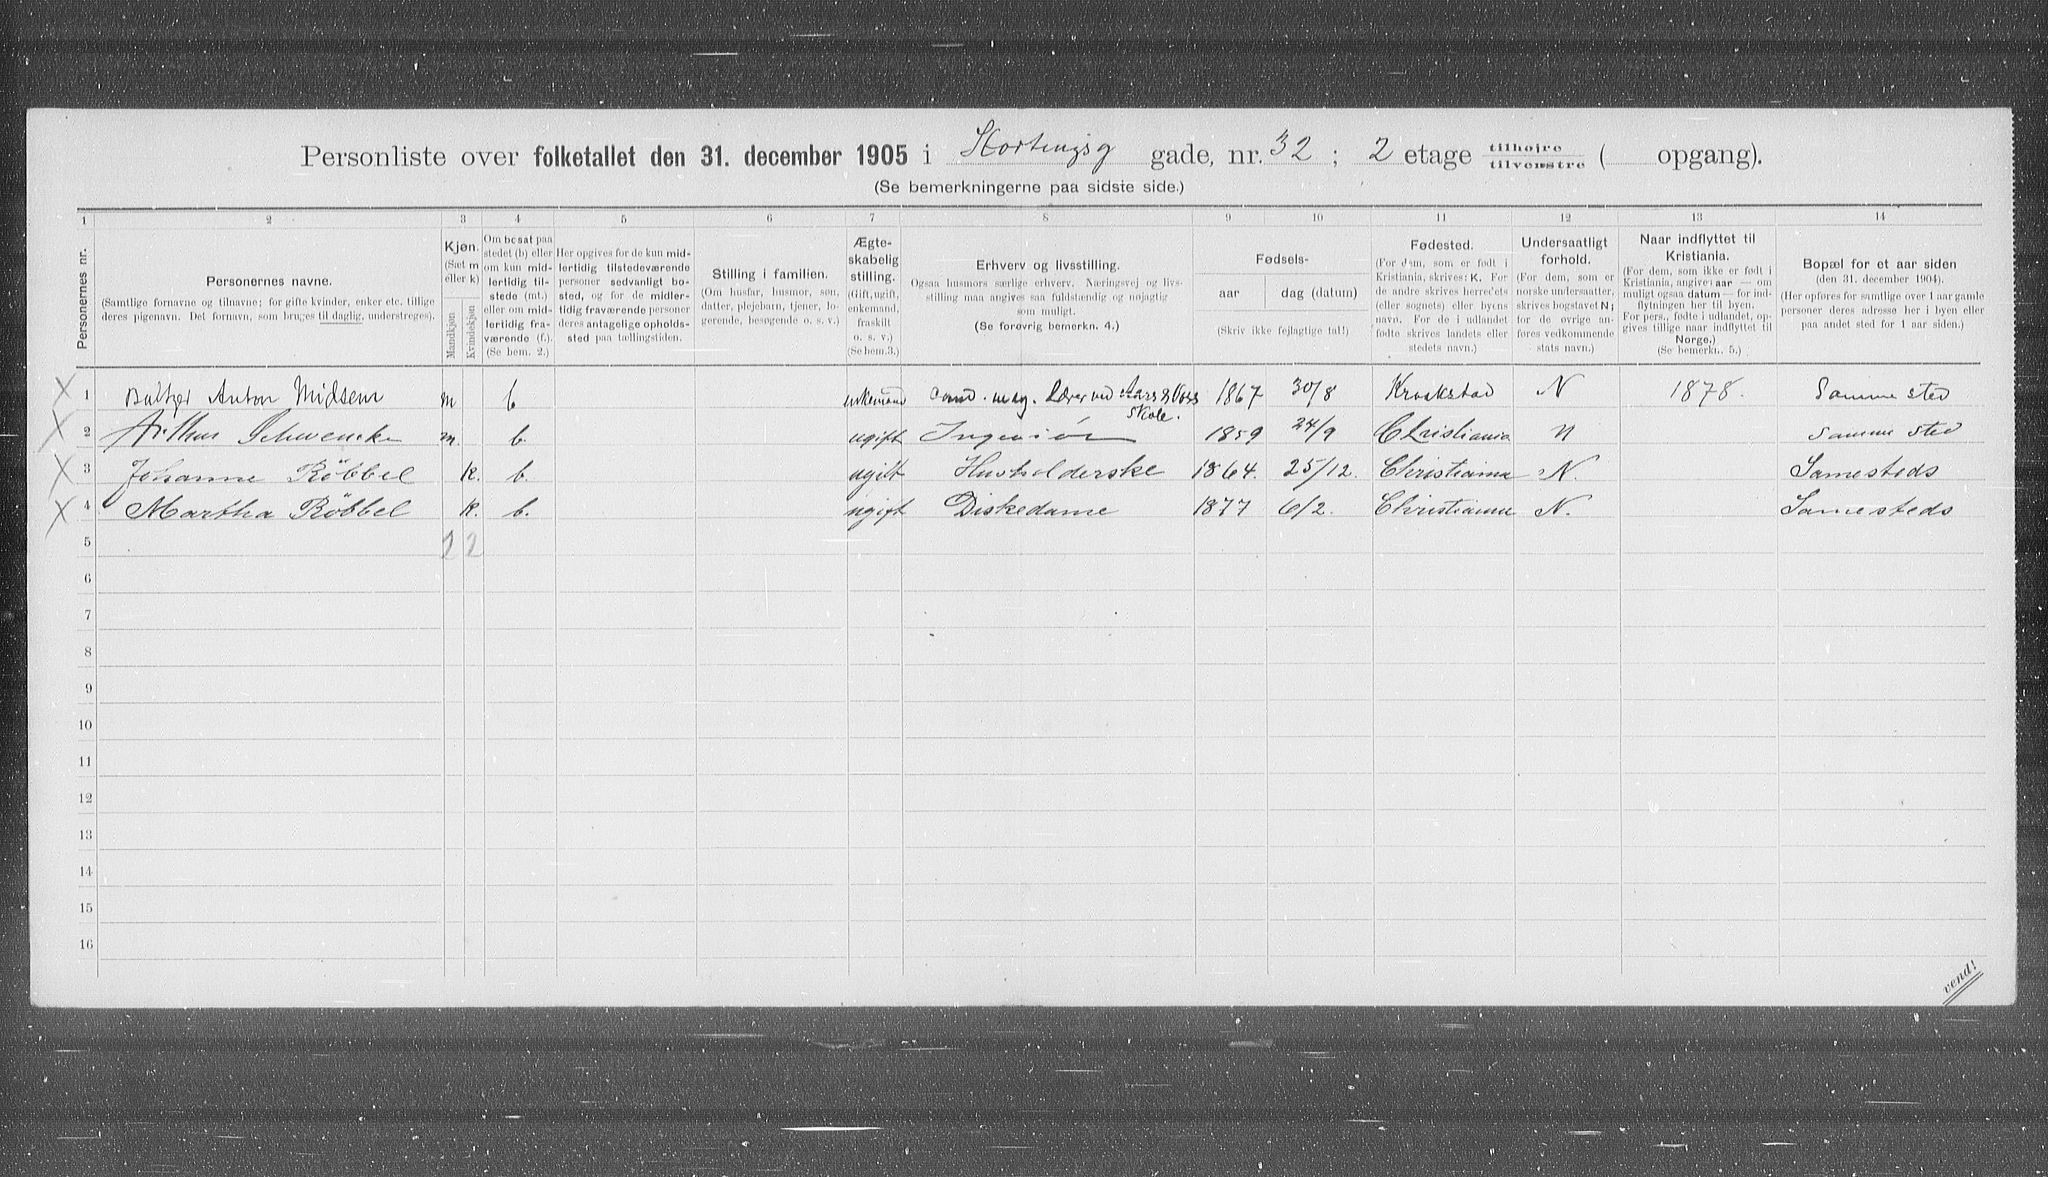 Personliste over folketallet den 31. december 1905 i Stortingsg gade, nr. 32 ; 2 etage tilhøjre tilvenstre ( opgang).
(Se bemerkningerne paa sidste side.)
1 2 3 4 5 6 7 8 9 10 11 12 13 14
Personernes nr.
Personernes navne.
(Samtlige fornavne og tilnavne; for gifte kvinder, enker etc. tillige
deres pigenavn. Det fornavn, som bruges til daglig, understreges).
Kjøn.
(Sæt m
eller k)
Mandkjøn
Kvindekjøn
Om bosat paa
stedet (b) eller
om kun mid-
lertidig til-
stede (mt.)
eller om mid-
lertidig fra-
værende (f.).
(Se bem. 2.)
Her opgives for de kun mid-
lertidig tilstedeværende
personer sedvanligt bo-
sted, og for de midler-
tidig fraværende personer
deres antagelige opholds-
sted paa tællingstiden.
Stilling i familien.
(Om husfar, husmor, søn,
datter, plejebarn, tjener, lo-
gerende, besøgende o. s. v.)
Ægte-
skabelig
stilling.
(Gift, ugift,
enkemand,
fraskilt
o. s. v.)
(Se bem.3.)
Erhverv og livsstilling.
Ogsaa husmors særlige erhverv. Næringsvej og livs-
stilling maa angives saa fuldstændig og nøjagtig
som muligt.
(Se forøvrig bemerkn. 4.)
Fødsels-
aar
dag (datum)
(Skriv ikke fejlagtige tal!)
Fødested.
(For dem, som er født i
Kristiania, skrives: K. For
de andre skrives herredets
(eller sognets) eller byens
navn. For de i udlandet
fødte skrives landets eller
stedets navn.)
Undersaatligt
forhold.
(For dem, som er
norske undersaatter,
skrives bogstavet N;
for de øvrige an-
føres vedkommende
stats navn.)
Naar indflyttet til
Kristiania.
(For dem, som ikke er født i
Kristiania, angives aar — om
muligt ogsaa datum — for ind-
flytningen her til byen.
For pers., fødte i udlandet, op-
gives tillige naar indflyttet til
Norge.)
(Se bemerkn. 5.)
Bopæl for et aar siden
(den 31. december 1904).
(Her opføres for samtlige over 1 aar gamle
personer deres adresse her i byen eller
paa andet sted for 1 aar siden.)
X 1 Anton m b enkemand cand. mag. Lærer ved Aars & Voss Skole. 1867 30/8 Kraakstad N 1878. Samme sted
X 2 Arthur Schwencke m. b. ugift Ingeniør 1859 24/9 Christiania N Samme sted
X 3 Johanne Röbbel k. b. ugift Husholderske 1864. 25/12. Christiania N. Samesteds
X 4 Martha Röbbel k. b. ugift Diskedame 1877 6/2. Christiania N. Samesteds
5 2 2
6
7
8
9
10
11
12
13
14
15
16
vend!